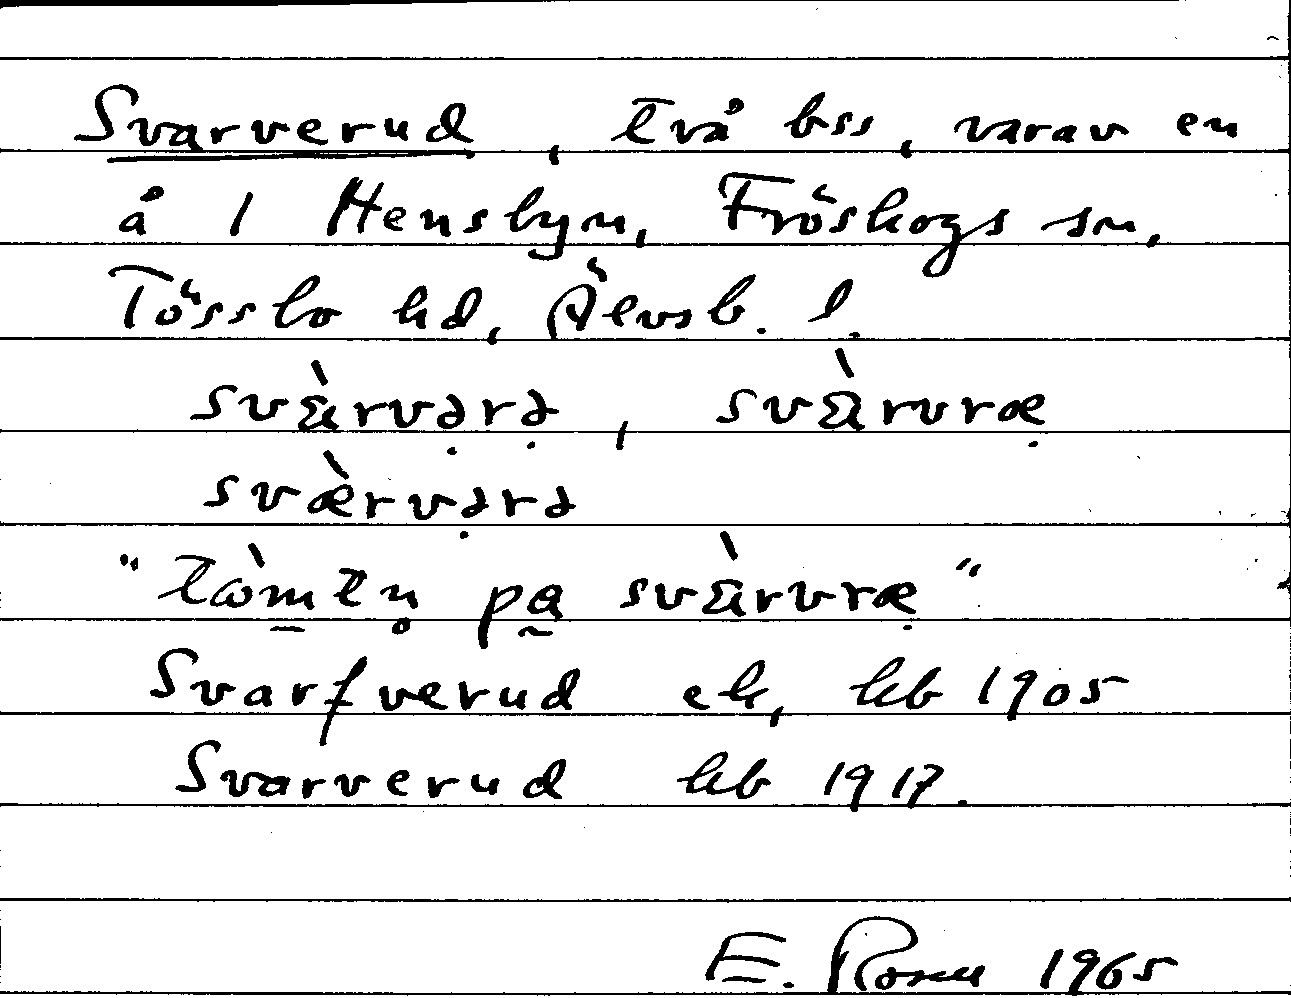 Svarverud, två bss, varav en
å 1 Hensbyn, Fröskogs sn,
Tössbo hd, Älvsb. l.
svὰrvə̣rə̣, svὰrvræ̣
svæ̀rvə̣rə
"tὼm̲tn̥ pa̰ svὰrvræ̣"
Svarfverud ek, kb 1905
Svarverud kb 1917.
E. Rosell 1965